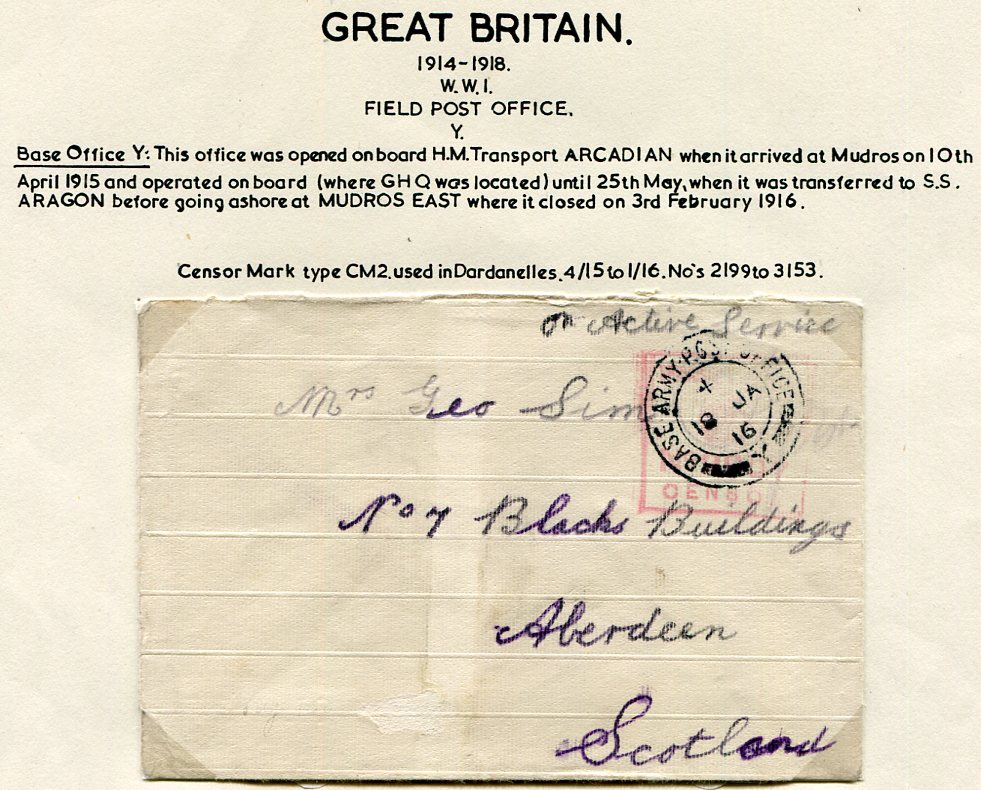 GREAT BRITAIN.
1914-1918.
W.W.I.
FIELD POST OFFICE.
Y.
Base Office Y: This office was opened on board H.M. Transport ARCADIAN when it arrived at Mudros on 10th
April 1915 and operated on board (where GHQ was located) until 25th May, when it was transferred to S.S.
ARAGON before going ashore at MUDROS EAST where it closed on 3rd February 1916.
Censor Mark type CM2. used in Dardanelles. 4/15 to 1/16. No's 2199 to 3153.
on Active Service
BASE ARMY POST OFFICE
X JA
16
Mrs Geo
No 7 Blacks Buildings
CENSO
Aberdeen
Scotland